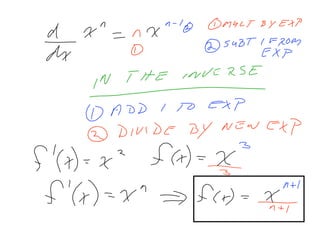 d/dx xⁿ = n xⁿ⁻¹ ① MULT BY EXP
① ② ② SUBT 1 FROM EXP
IN THE INVERSE
① ADD 1 TO EXP
② DIVIDE BY NEW EXP
f'(x) = x² f(x) = x³/3
f'(x) = xⁿ ⇒ f(x) = xⁿ⁺¹/n+1